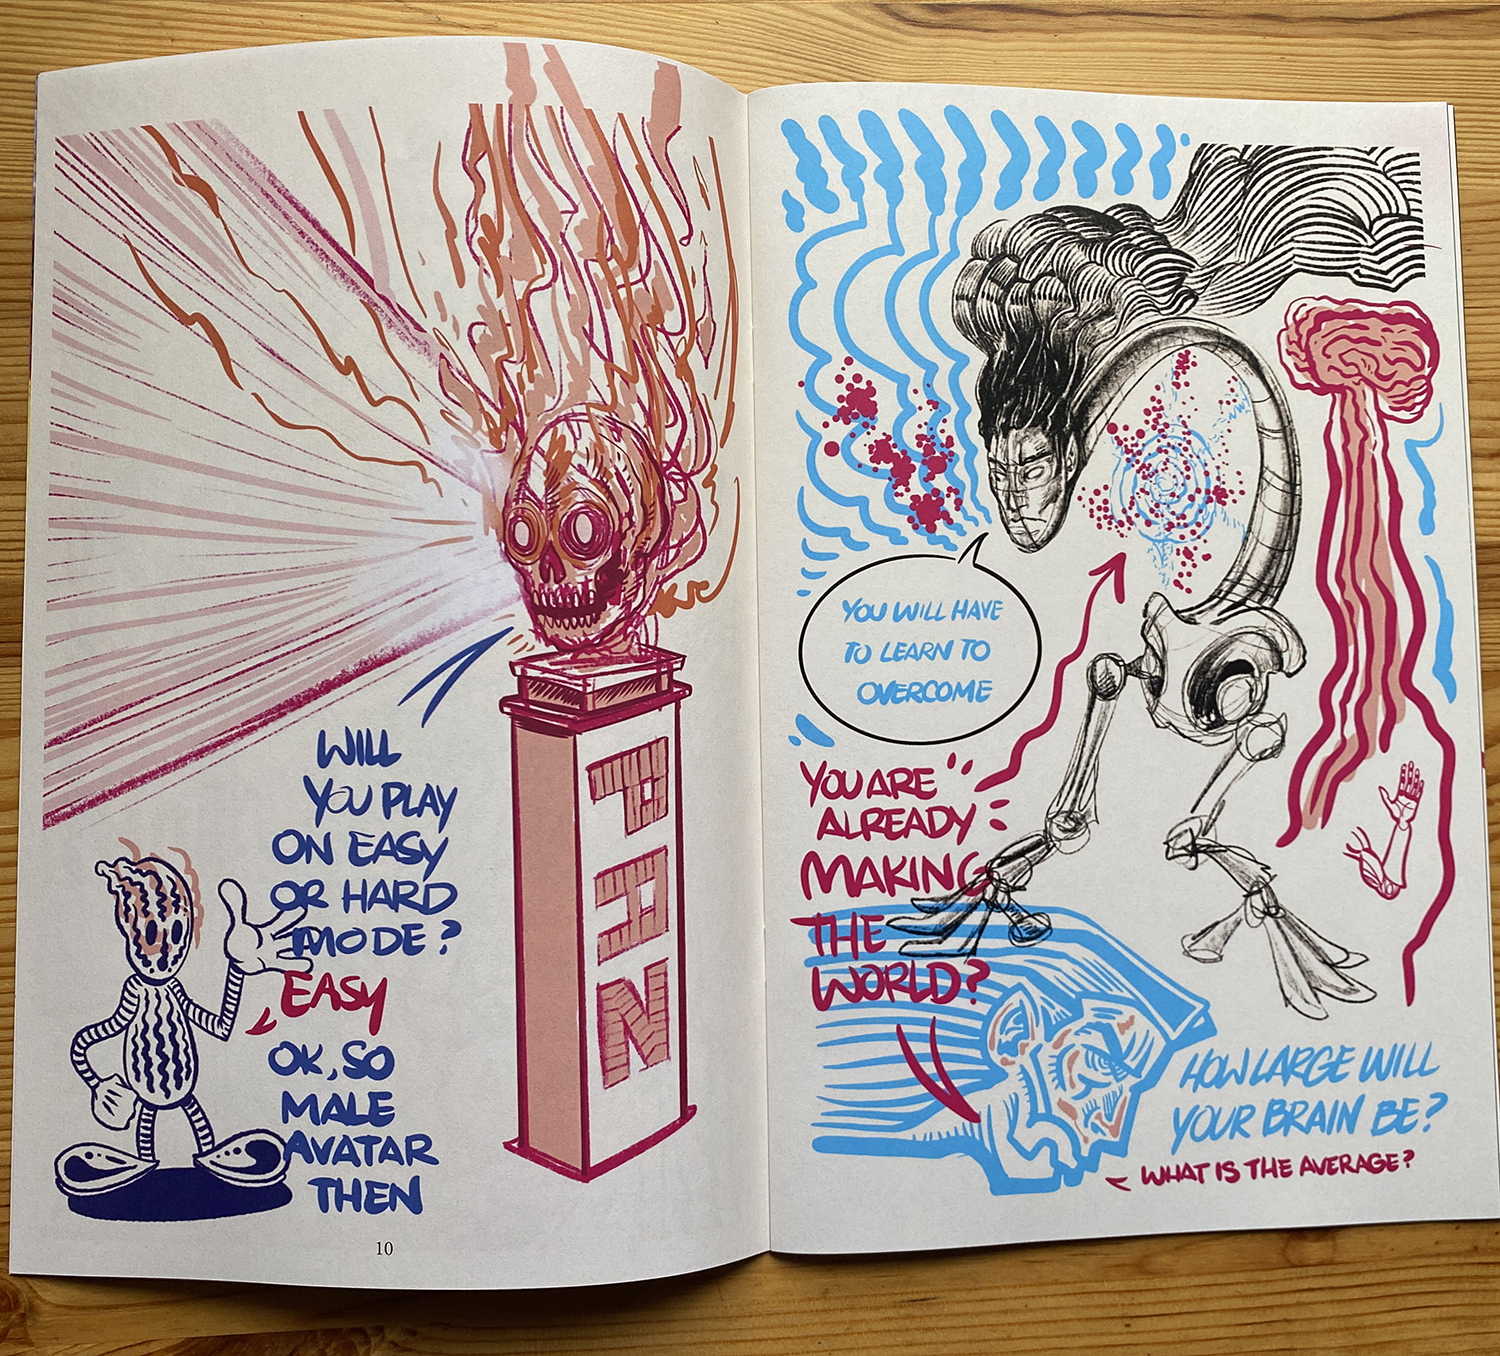 WILL
YOU PLAY
ON EASY
OR HARD
MODE?
EASY
OK, SO
MALE
AVATAR
THEN
10
YOU WILL HAVE
TO LEARN TO
OVERCOME
YOU ARE
ALREADY
MAKING
THE
WORLD?
HOW LARGE WILL
YOUR BRAIN BE?
WHAT IS THE AVERAGE?